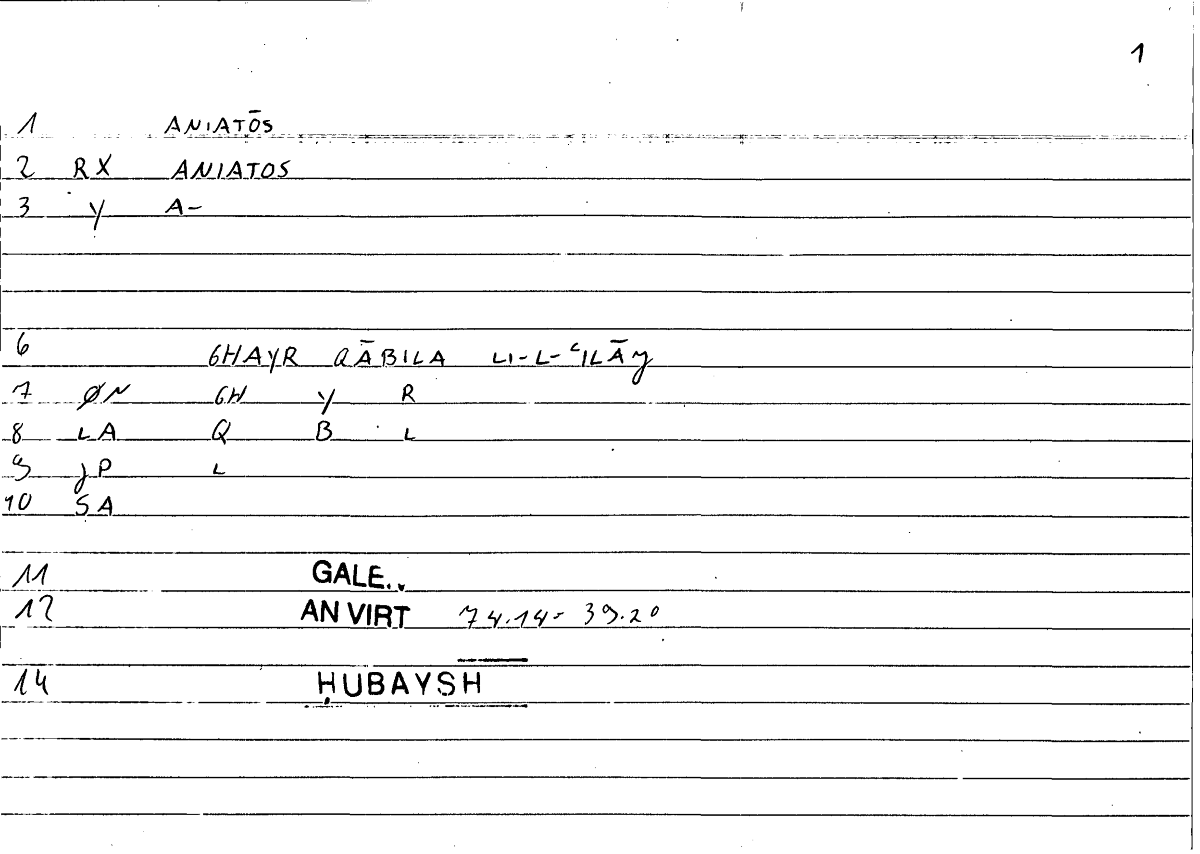 1
1 ANIATŌS
2 RX ANIATOS
3 y A-
6 GHAYR QĀBILA LI-L-ʿILĀJ
7 ØN GH Y R
8 LA Q B L
9 JP L
10 SA
11 GALE..
12 AN VIRT 74.14-39.20
14 ḤUBAYSH